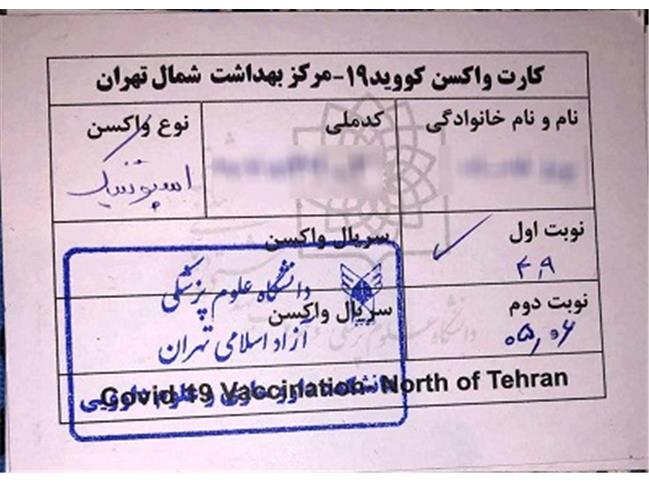 کارت واکسن کووید۱۹-مرکز بهداشت شمال تهران
نام و نام خانوادگی
کدملی
نوع واکسن
اسپوتنیک
نوبت اول
سریال واکسن
نوبت دوم
۰۵,۰۶
سریال واکسن
دانشگاه علوم پزشکی
آزاد اسلامی تهران
Covid 19 Vaccination- North of Tehran